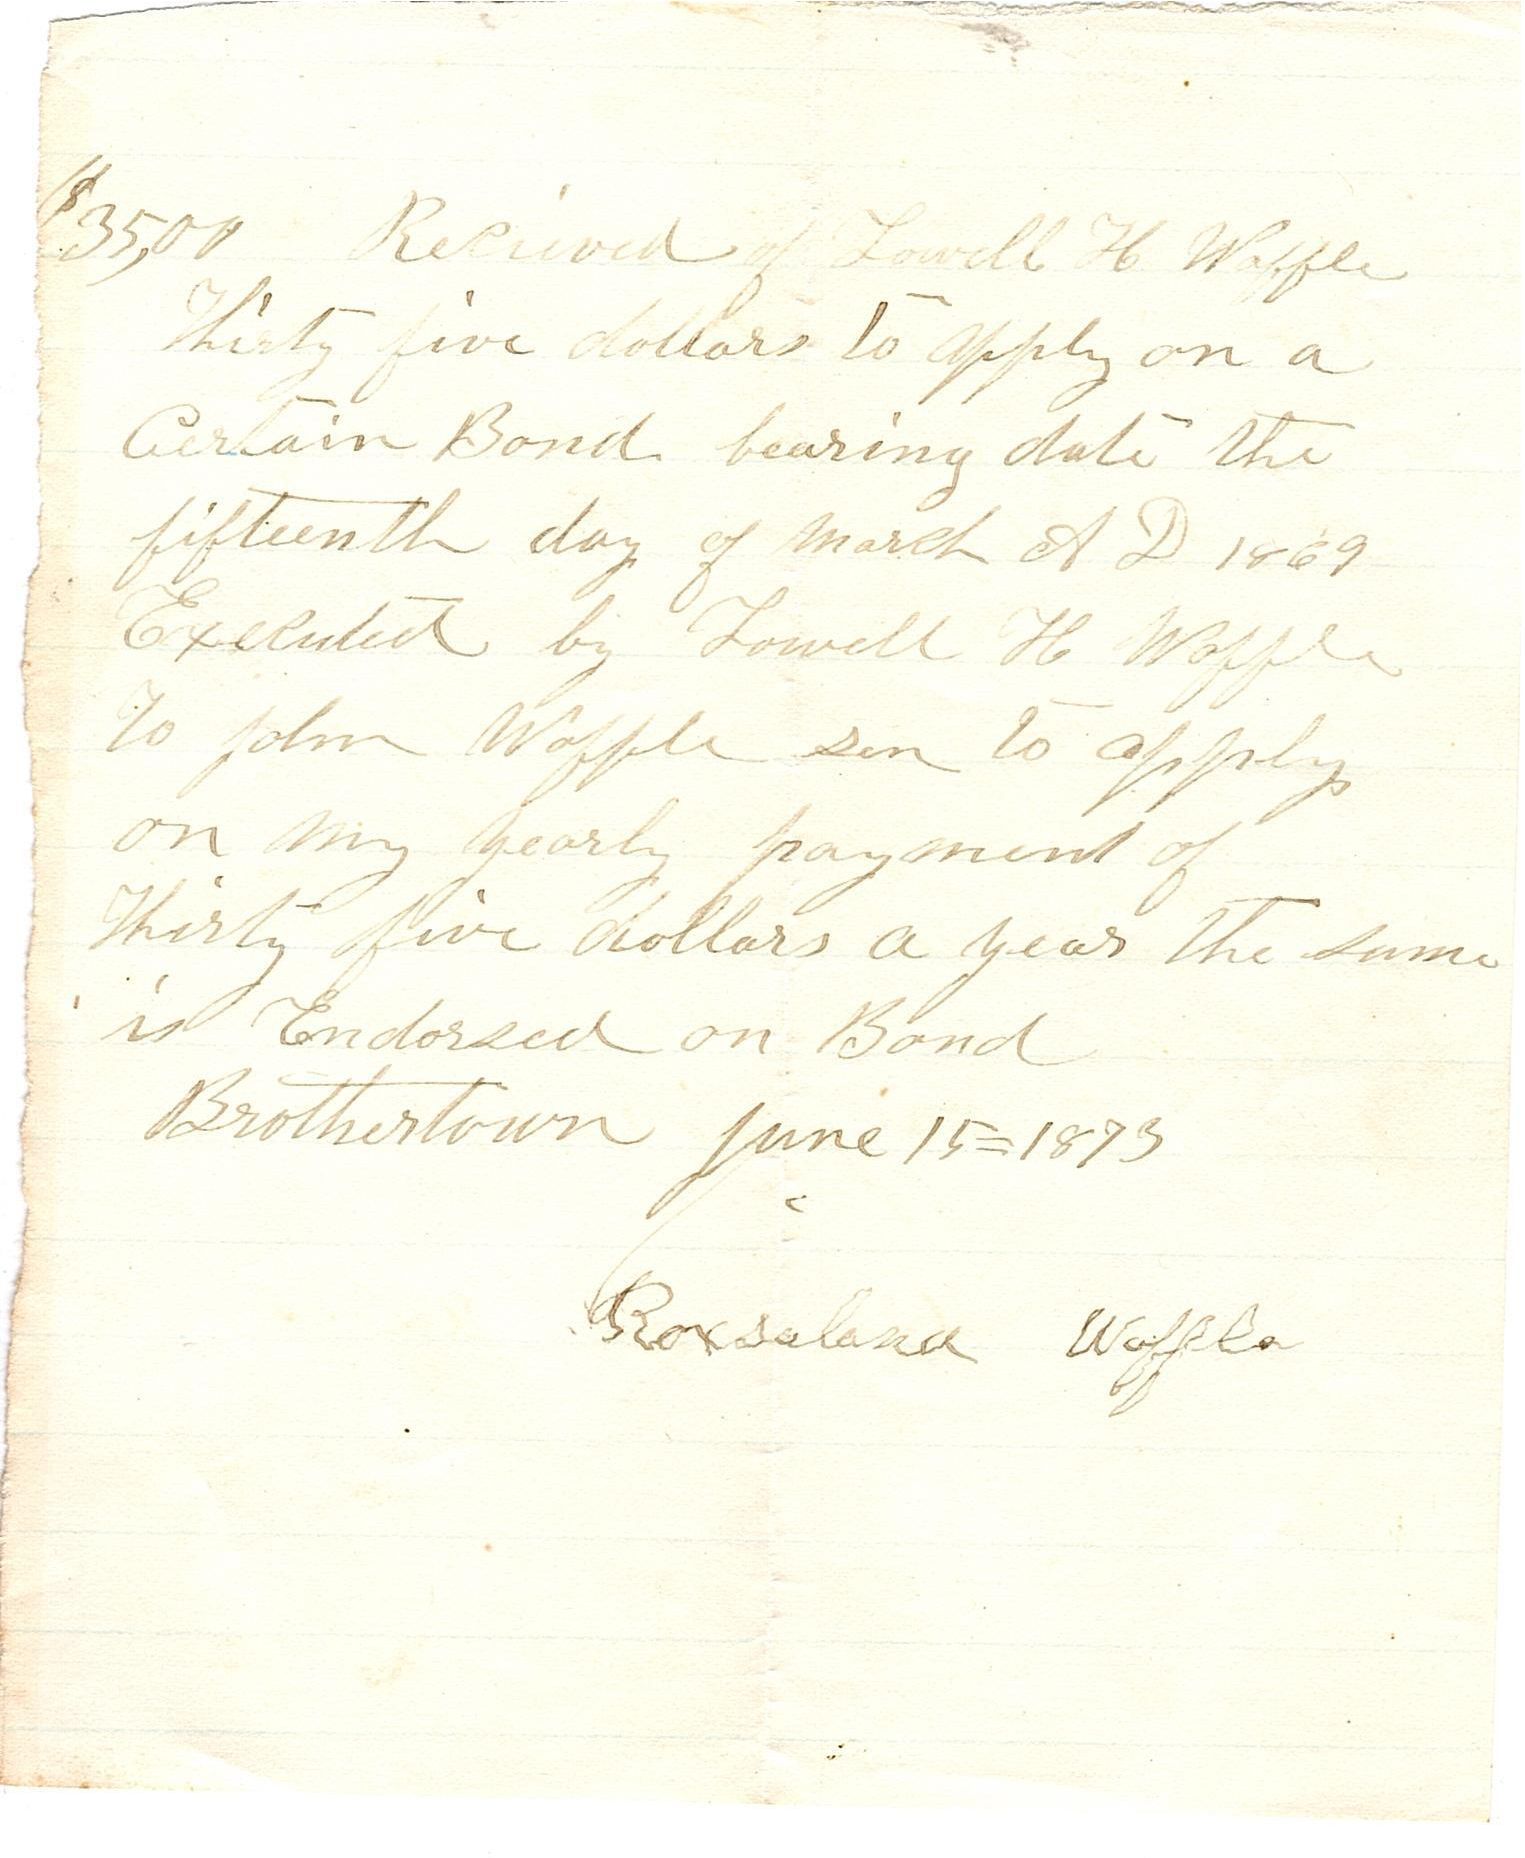 $35,00 Recieved of Lowell H Waffle
Thirty five dollars to apply on a
Certain Bond bearing date the
fifteenth day of March A D 1869
Executed by Lowell H Waffle
To John Waffle sen to apply
on my yearly payment of
Thirty five dollars a year the same
is Endorsed on Bond
Brothertown June 15=1873
Roxsaland Waffle